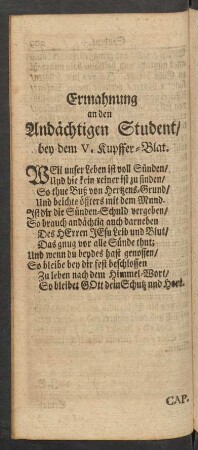 Ermahnung
an den
Andächtigen Student/
bey dem V. Kupffer-Blat.
WEil unser Leben ist voll Sünden/
Und hie kein reiner ist zu finden/
So thue Buß von Hertzens-Grund/
Und beichte öffters mit dem Mund.
Ist dir die Sünden-Schuld vergeben/
So brauch andächtig auch darneben
Des HErrn JEsu Leib und Blut/
Das gnug vor alle Sünde thut;
Und wenn du beydes hast genossen/
So bleibe bey dir fest beschlossen
Zu leben nach dem Himmel-Wort/
So bleibet GOtt dein Schutz und Hort.
CAP.